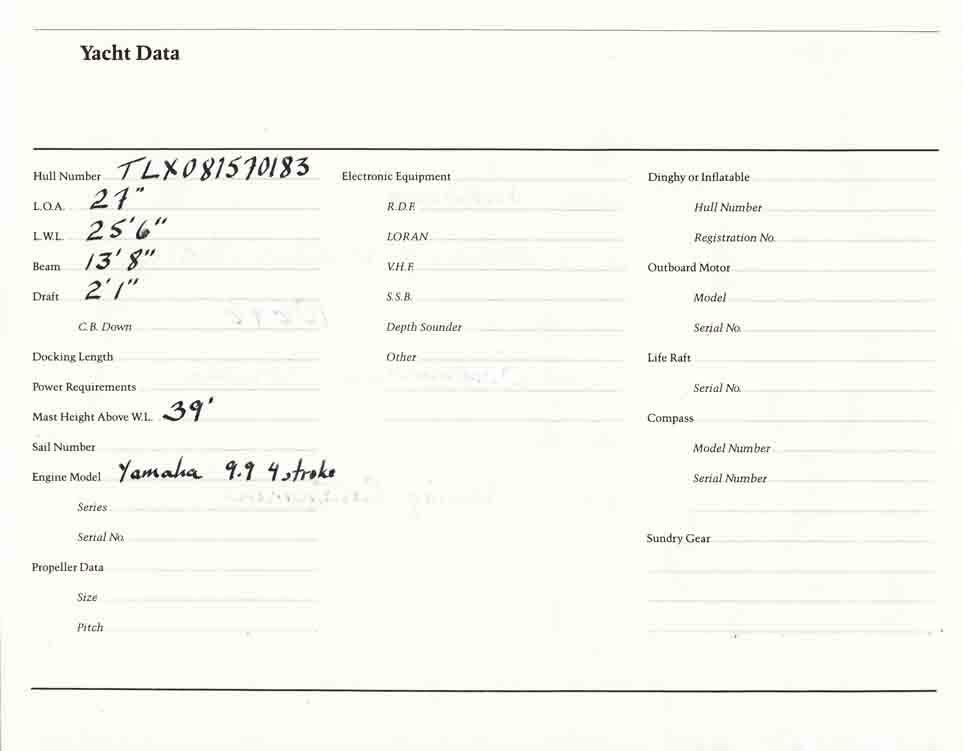 Yacht Data
Hull Number TLX081570183
L.O.A. 27"
L.W.L. 25'6"
Beam 13' 8"
Draft 2'1"
C.B. Down
Docking Length
Power Requirements
Mast Height Above W.L. 39'
Sail Number
Engine Model Yamaha 9.9 4 stroke
Series
Serial No.
Propeller Data
Size
Pitch
Electronic Equipment
R.D.F.
LORAN
V.H.F.
S.S.B.
Depth Sounder
Other
Dinghy or Inflatable
Hull Number
Registration No.
Outboard Motor
Model
Serial No.
Life Raft
Serial No.
Compass
Model Number
Serial Number
Sundry Gear